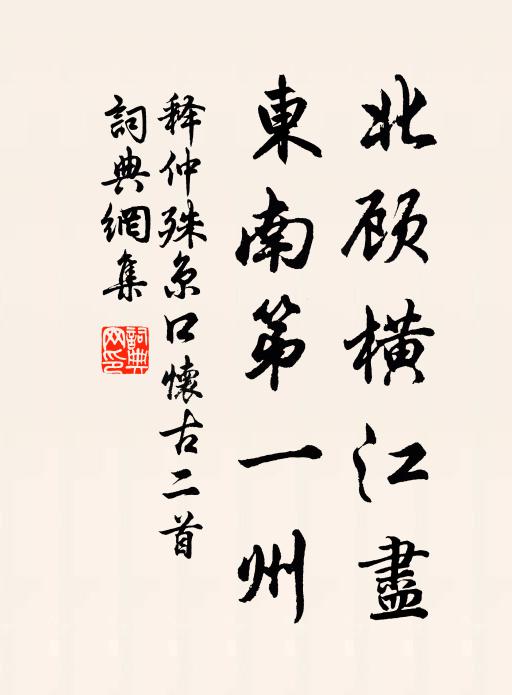 北顾横江盡
東南第一州
释仲殊京口懷古二首
詞典網集
詞典網印